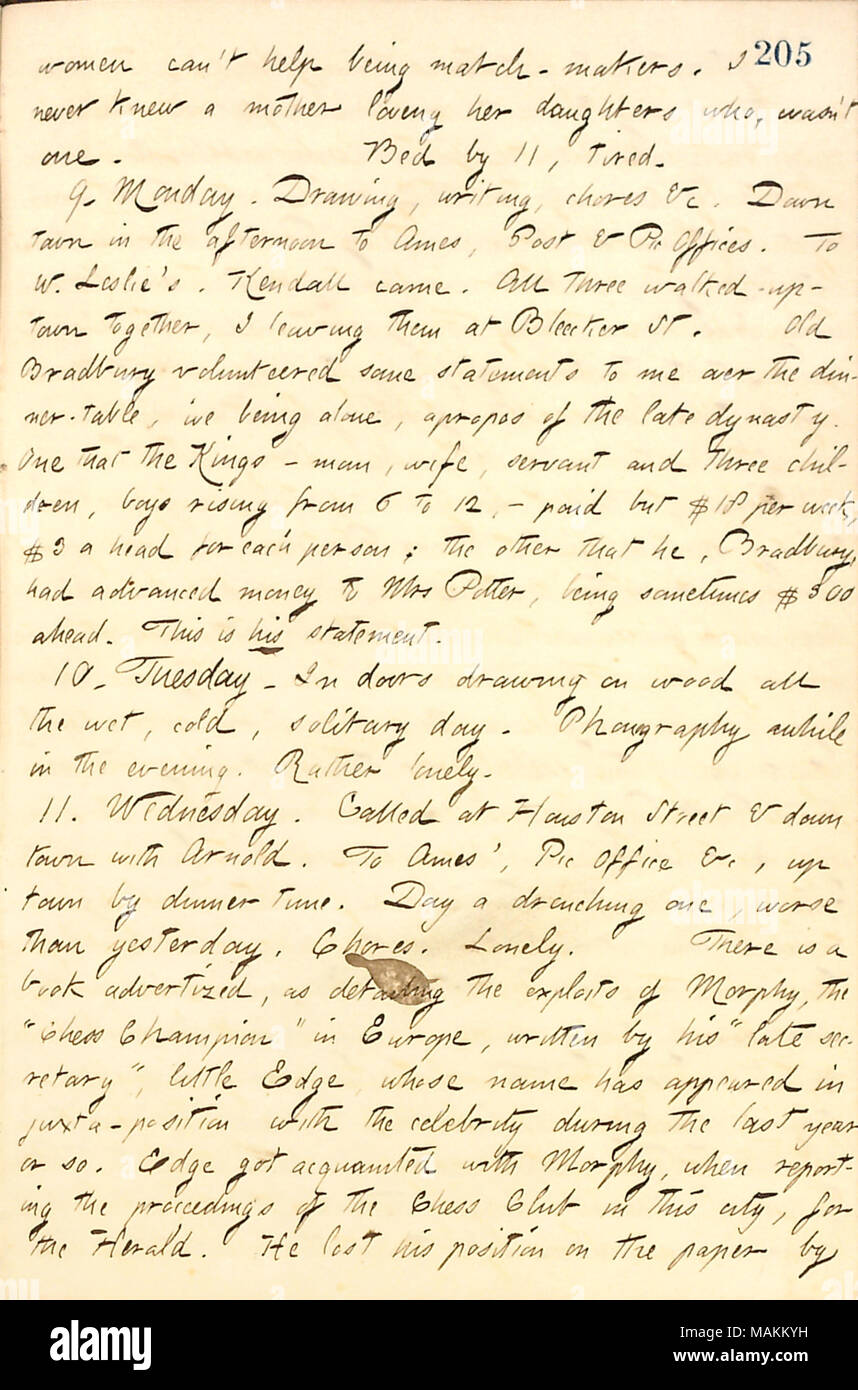 205
women can't help being match-makers. I
never knew a mother loving her daughters who, wasn't
one. Bed by 11, tired.
9. Monday. Drawing, writing, chores &c. Down
town in the afternoon to Ames, Post & Pic Offices. To
W. Leslie's. Kendall came. All three walked up-
town together, I leaving them at Bleecker St. Old
Bradbury volunteered some statements to me over the din-
ner-table, we being alone, apropos of the late dynasty.
One that the Kings — man, wife, servant and three chil-
dren, boys rising from 6 to 12, — paid but $18 per week,
$3 a head for each person; the other that he, Bradbury,
had advanced money to Mrs Potter, being sometimes $300
ahead. This is his statement.
10. Tuesday. In doors drawing on wood all
the wet, cold, solitary day. Phonography awhile
in the evening. Rather lonely.
11. Wednesday. Called at Houston Street & down
town with Arnold. To Ames', Pic Office &c, up
town by dinner time. Day a drenching one, worse
than yesterday. Chores. Lonely. There is a
book advertized, as detailing the exploits of Morphy, the
"Chess Champion" in Europe, written by his "late sec-
retary", little Edge, whose name has appeared in
juxta-position with the celebrity during the last year
or so. Edge got acquainted with Morphy, when report-
ing the proceedings of the Chess Club in this city, for
the Herald. He lost his position on the paper by
alamy
Image ID: MAKKYH
www.alamy.com